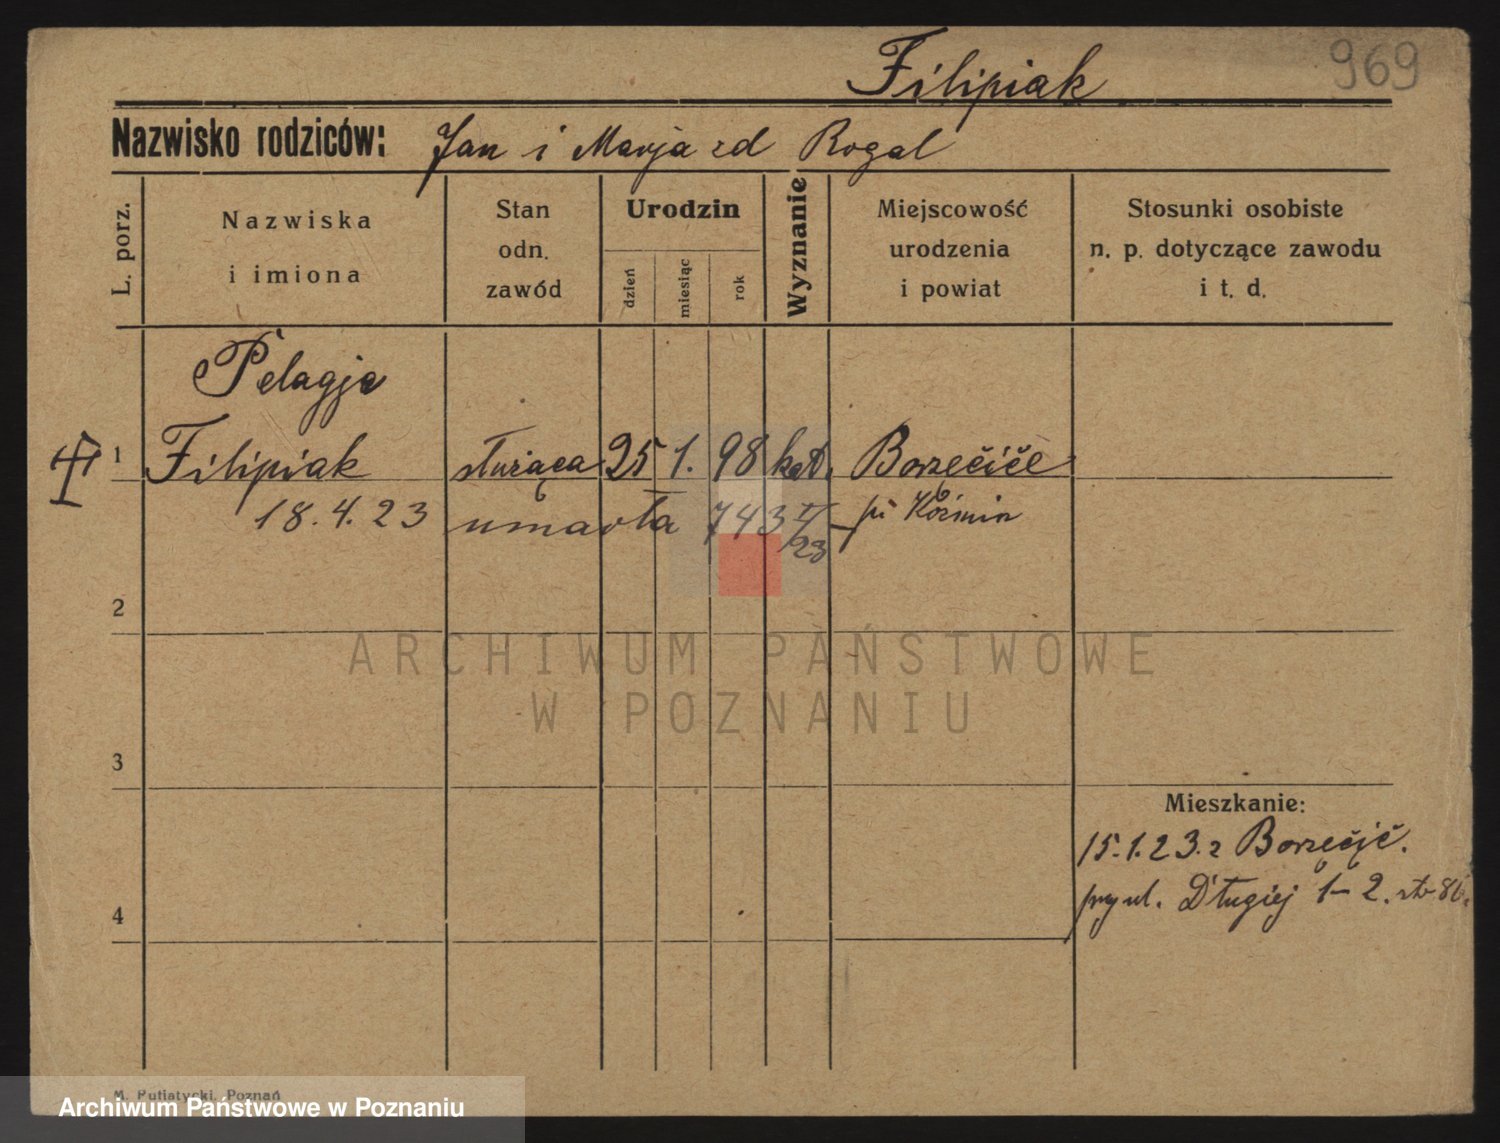 Filipiak
969
Nazwisko rodziców: Jan i Marja zd Rogal
L. porz.
Nazwiska i imiona
Stan odn. zawód
Urodzin
dzień
miesiąc
rok
Wyznanie
Miejscowość urodzenia i powiat
Stosunki osobiste n. p. dotyczące zawodu i t. d.
Pelagja
1 Filipiak służąca 25 1. 98 kat. Borzęcice
18.4.23 umarła 743 II/23 pt Koźmin
2
ARCHIWUM PAŃSTWOWE
W POZNANIU
3
Mieszkanie:
15.1.23. z Borzęcic.
przy ul. Długiej 1-2. str 86.
4
M. Putiatycki, Poznań
Archiwum Państwowe w Poznaniu